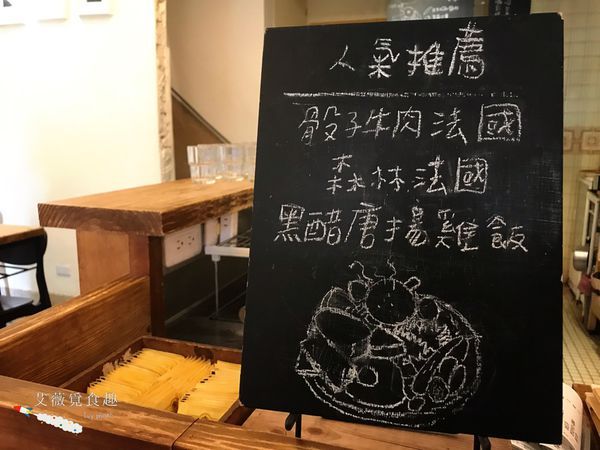 人氣推薦
骰子牛肉法國
森林法國
黑醋唐揚雞飯
艾薇覓食趣